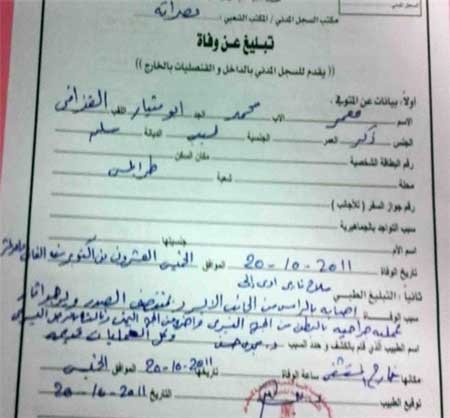 مصراته
مكتب السجل المدني / المكتب الشعبي
تبليغ عن وفاة
(( يقدم للسجل المدني بالداخل و القنصليات بالخارج ))
اولاً : بيانات عن المتوفى .
الاسم معمر الاب محمد الجد ابو منيار اللقب القذافي
الجنس ذكر العمر الجنسية ليبي الديانة مسلم
رقم البطاقة الشخصية مكان السكن
محلة شعبية طرابلس
رقم جواز السفر ( للأجانب )
سبب التواجد بالجماهيرية
اسم الأم جنسيتها
تاريخ الوفاة 20-10-2011 الموافق الخميس العشرون من أكتوبر
ثانياً : التبليغ الطبي سلاح ناري ادى إلى
سبب الوفاة اصابه بالراس من الجانب الايسر بمنتصف الصدر
عمليه جراحيه بالبطن من
اسم الطبيب الذي قام بالكشف و حدد السبب
مكانها خارج المستشفى ساعة الوفاة تاريخها 20-10-2011 الموافق الخميس
توقيع الطبيب التاريخ 20-10-2011